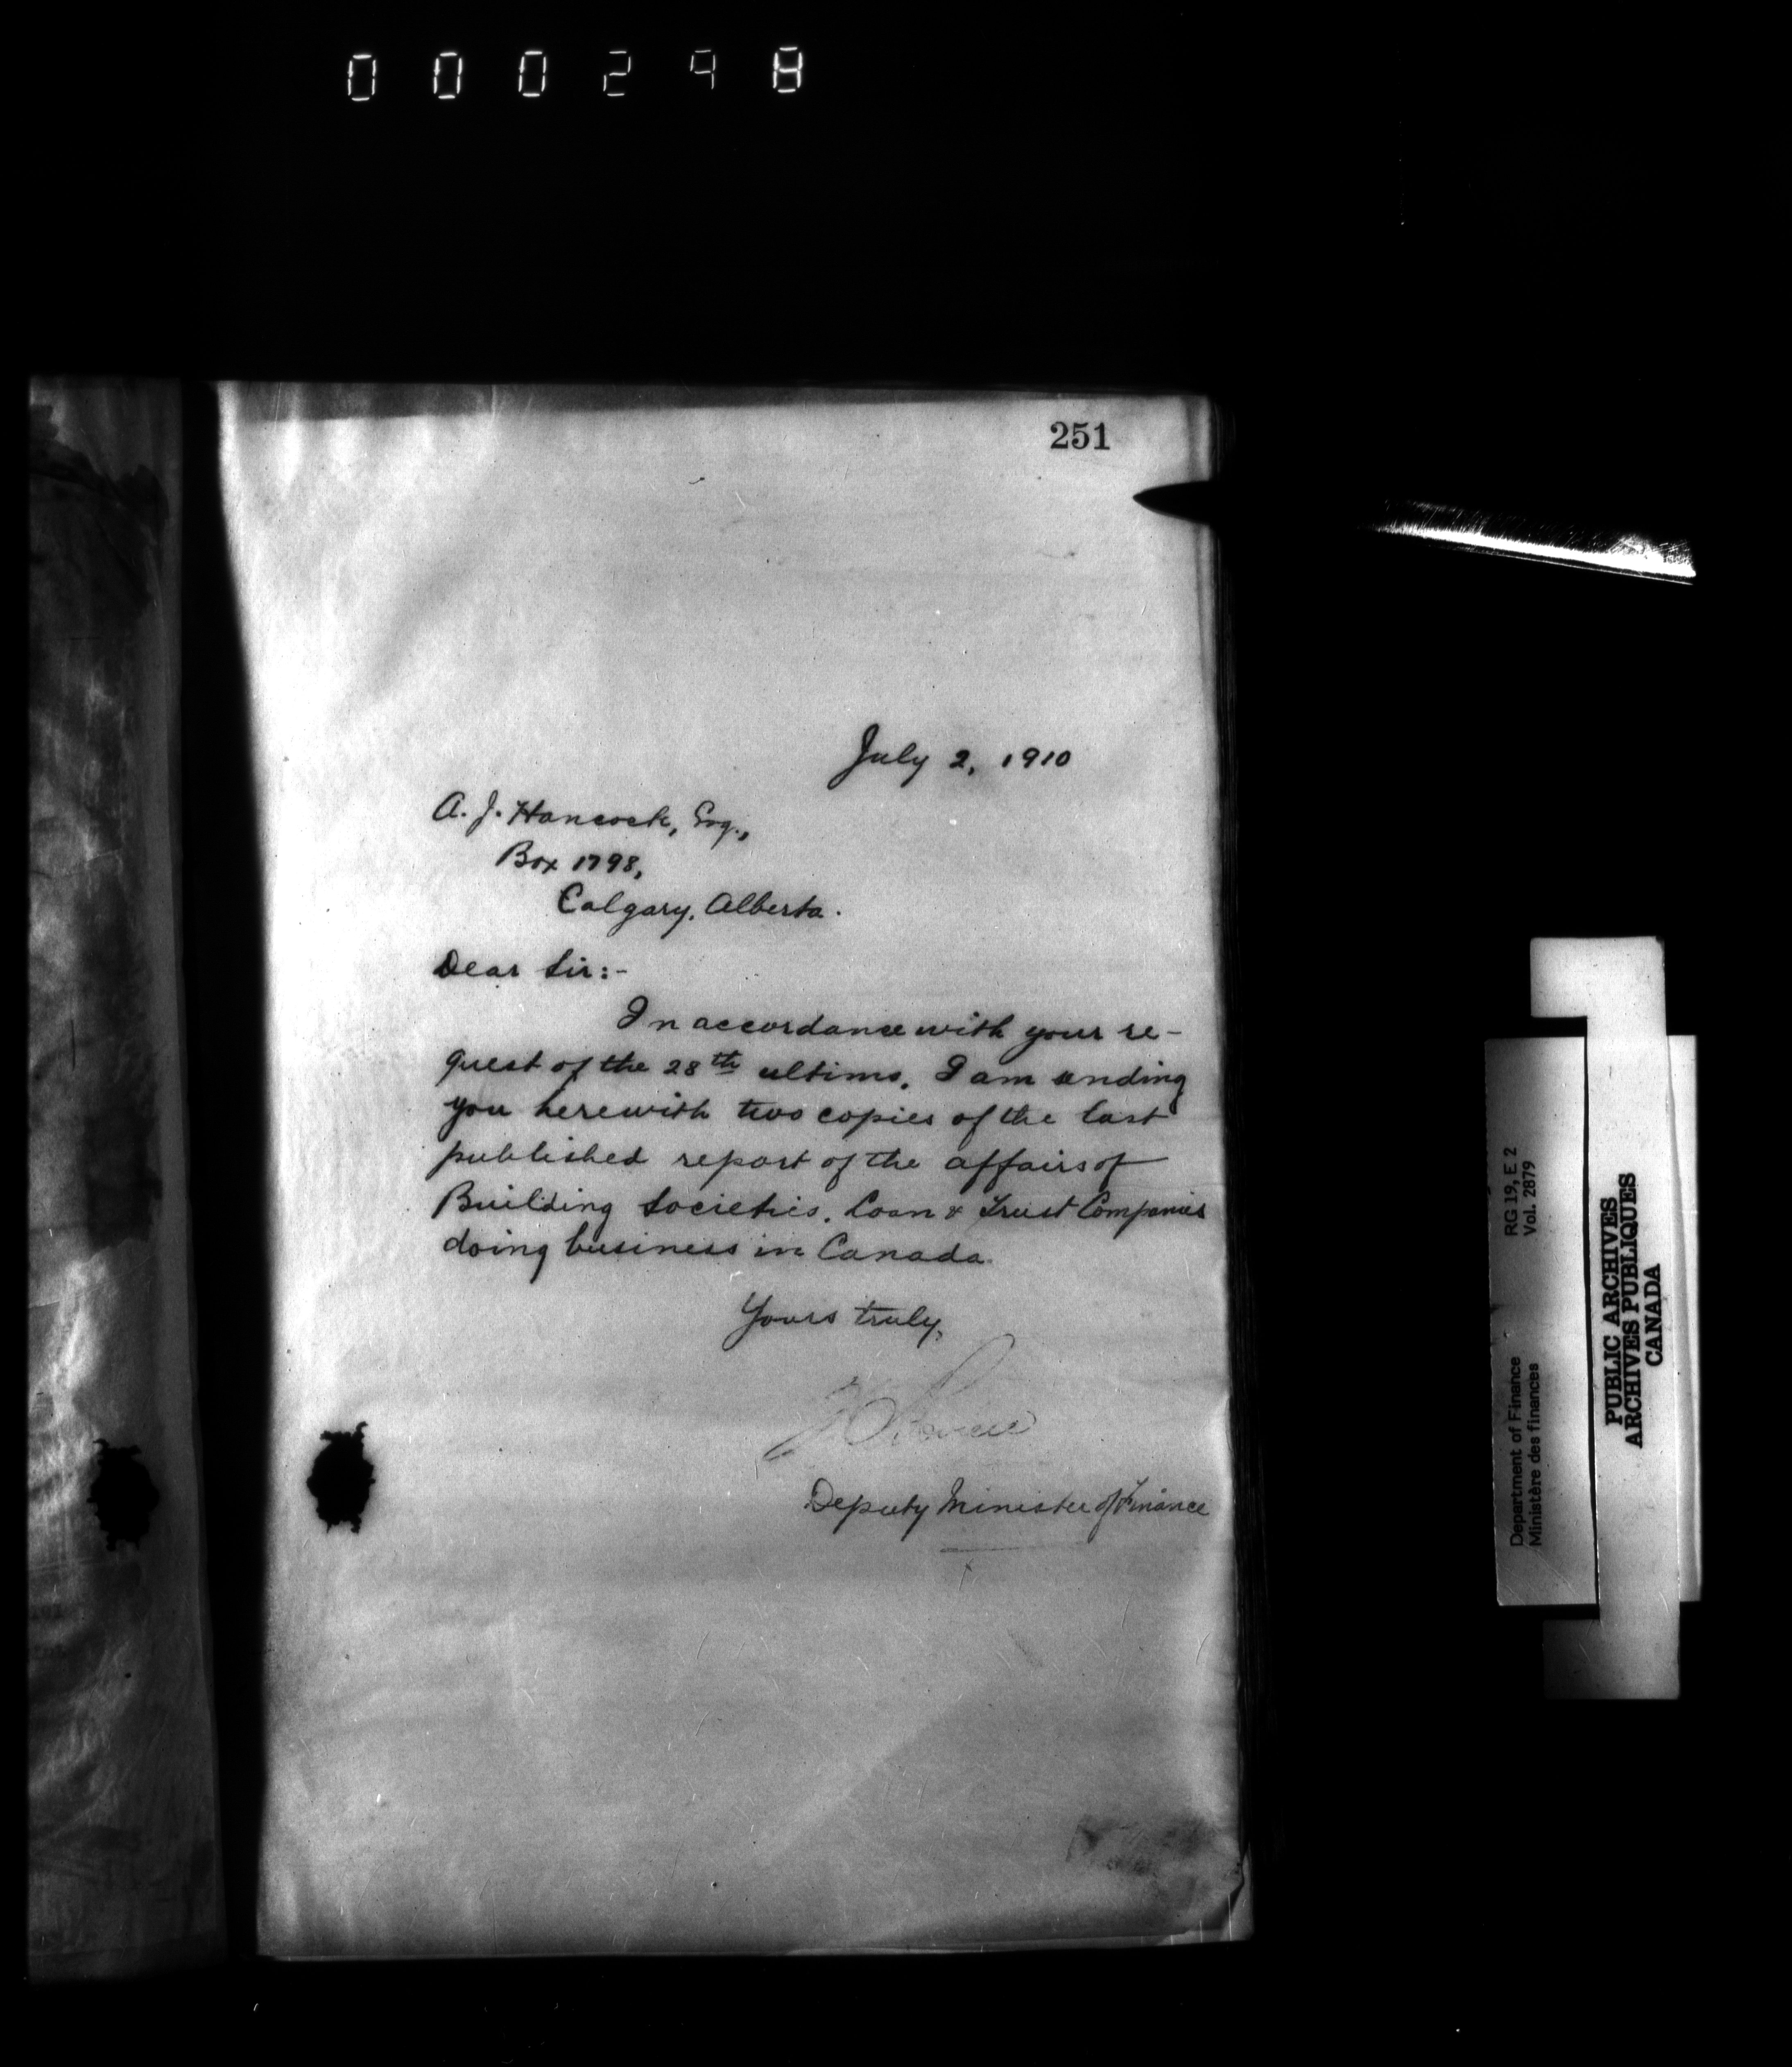 000298
251
July 2, 1910
A. J. Hancock, Esq.,
Box 1798,
Calgary, Alberta.
Dear Sir:-
In accordance with your re-
quest of the 28th ultimo, I am sending
you herewith two copies of the last
published report of the affairs of
Building Societies, Loan & Trust Companies
doing business in Canada.
Yours truly,
Deputy Minister of Finance
Department of Finance
Ministère des finances
RG 19, E 2
Vol. 2879
PUBLIC ARCHIVES
ARCHIVES PUBLIQUES
CANADA